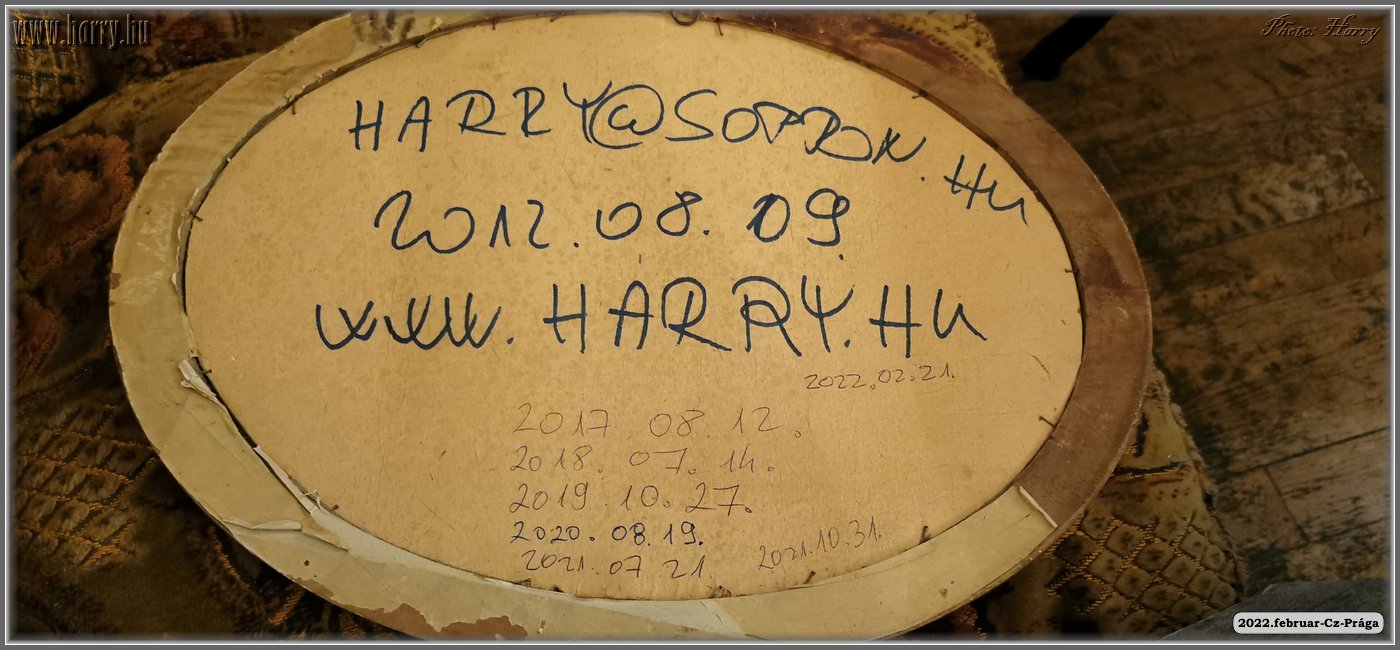 www.harry.hu
Photo: Harry
HARRY@SOPRON.HU
2012.08.09.
WWW.HARRY.HU
2022.02.21.
2017.08.12.
2018.07.14.
2019.10.27.
2020.08.19.
2021.07.21.
2021.10.31.
2022.februar-Cz-Prága